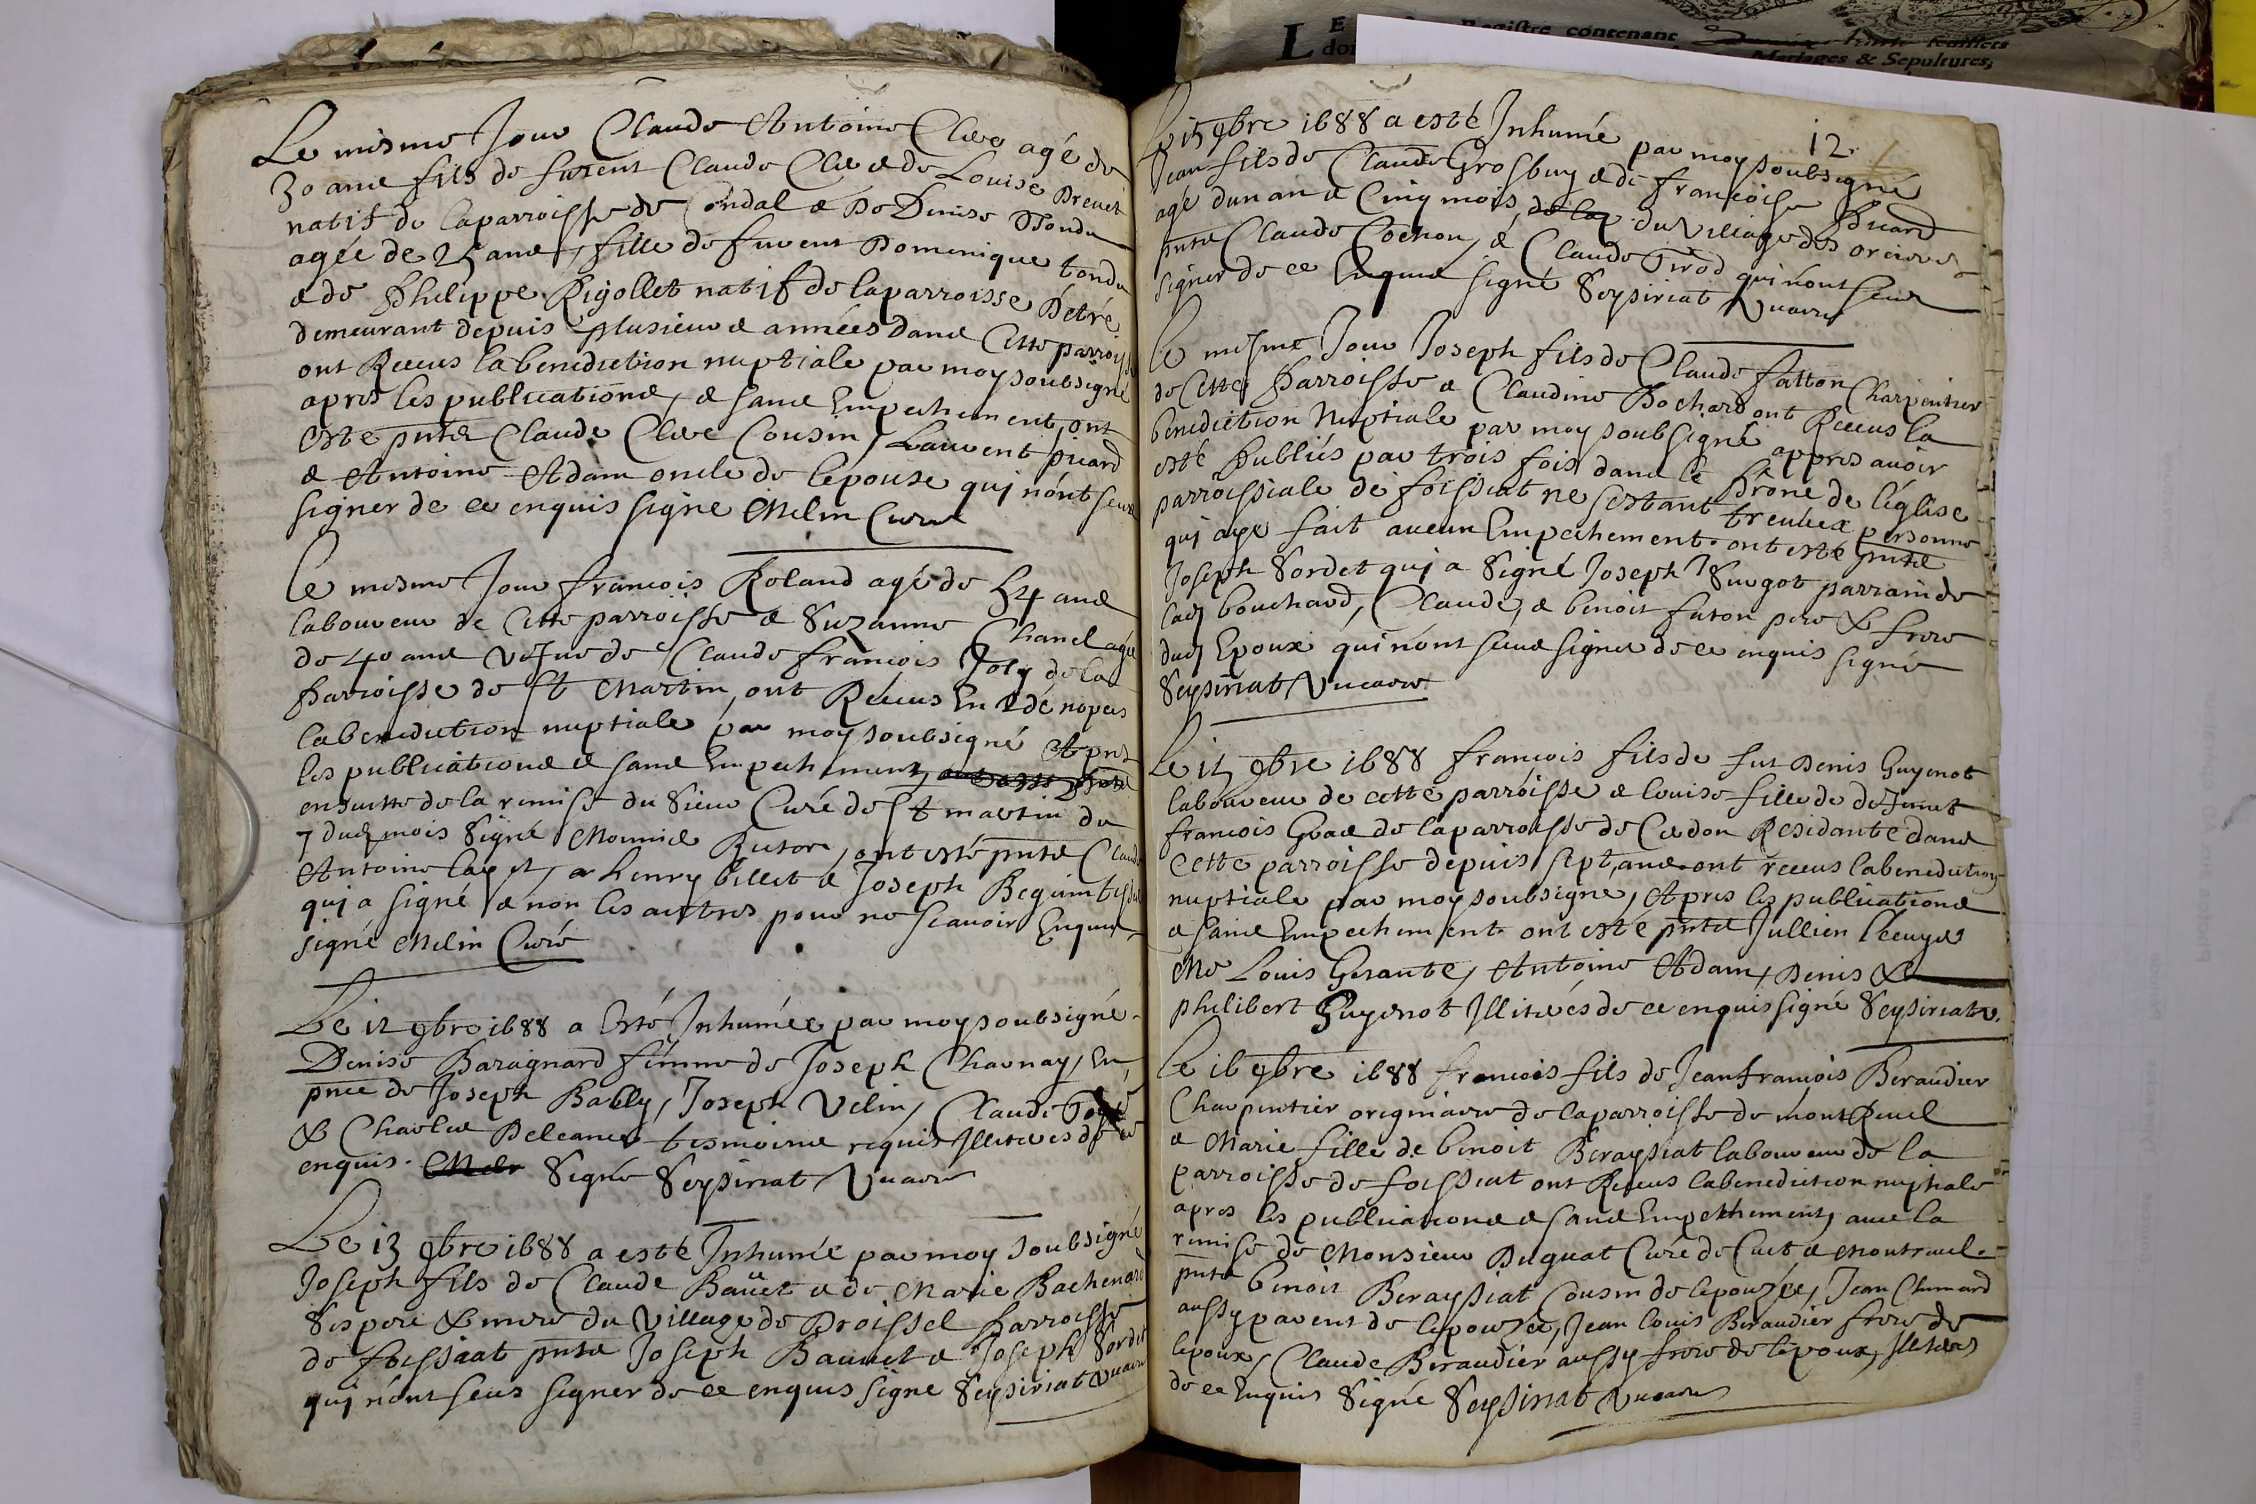 Le mesme Jour Claude Antoine Clerc agé de
30 ans fils de furent Claude Clerc & de Louise Brevet
natif de la parroisse de Condal & De Denise Tondu
agée de 25 ans, fille de furent Dominique tondu
& de Philippe Rigollet natif de la parroisse Detré
demeurant depuis plusieurs années dans Cette parroisse
ont Receus la benediction nuptiale par moy soubsigné
apres les publications, & sans Empechement, ont
esté pnts Claude Clerc Cousin, Laurent picard
& Antoine Adam oncle de lepouse qui nont sceu
signer de ce enquis signe Melin Curé
Le mesme Jour francois Roland agé de 54 ans
laboureur de Cette parroisse & Suzanne Chanel agée
de 40 ans vefue de Claude francois Joly de la
parroisse de St Martin, ont Receus
la benediction nuptiale par moy soubsigné Apres
les publications & sans Empechement,
ensuitte de la remise du Sieur Curé de St martin du
7 dud mois Signé Mounier, ont esté pnts Claude
Antoine layet, & henry billet & Joseph Beguin
qui a signé & non les autres pour ne scavoir Enquis
signé Melin Curé
Le 12 9bre 1688 a Esté Inhumée par moy soubsigné
Denise Baragnard femme de Joseph Charnay, En
pnce de Joseph Bably, Joseph Velin, Claude
& Charles tesmoins requis Illiterés de ce
enquis. Signé Seysiriat Vicaire
Le 13 9bre 1688 a esté Inhumée par moy soubsigné
Joseph fils de Claude Baüet & de Marie Bachenard
Ses pere & mere du village de Broissel parroisse
de foissiat pnts Joseph Bauuet & Joseph Sordet
qui nont sceus signer de ce enquis signe Seysiriat vicaire
12
Le 15 9bre 1688 a esté Inhumé par moy soubsigné
Jean fils de Claude Grosbuy & de francoise Picard
agé dun an & Cinq mois, du village des
pnts Claude Cochon, & Claude Tirod qui nont sceus
signer de ce Enquis signé Seysiriat Vicaire
Le mesme Jour Joseph fils de Claude fatton Charpentier
de Cette Parroisse & Claudine Bochard ont Receus la
benediction Nuptiale par moy soubsigné appres avoir
esté Publiés par trois fois dans le Prone de l'église
parroissiale de foissiat ne sestant treuvée personne
qui aye fait aucun Empechement. ont esté pnts
Joseph Sordet qui a Signé Joseph Sugot parrain de
lad bouchard, Claude, & benoit faton pere & frere
dud Epoux qui nont sceus signer de ce enquis signé
Seysiriat Vicaire
Le 15 9bre 1688 francois fils de fut Denis Guyenot
laboureur de cette parroisse & louise fille de defunct
francois Gras de la parroisse de Residante dans
Cette parroisse depuis sept ans ont receus la benediction
nuptiale par moy soubsigne, Apres les publications
& sans Empechement ont esté pnts Jullien lécuyer
Me Louis Gerante, Antoine Adam, Denis &
philibert Guyenot Illiterés de ce enquis signé Seysiriat v.
Le 16 9bre 1688 francois fils de Jean francois Beraudier
Charpentier originaire de la parroisse de montReuel
& Marie fille de benoit Beraysiat laboureur de la
parroisse de foissiat ont Receus la benediction nuptiale
apres les publications & sans Empechement, avec la
remise de Monsieur Duguat Curé de Cuet & Montreuel.
pnts benoit Beraysiat Cousin de lepouzée, Jean
aussy parent de lepouzée, Jean louis Beraudier frere de
lepoux, Claude Beraudier aussy frere de lepoux, Illiterés
de ce Enquis Signé Seysiriat Vicaire